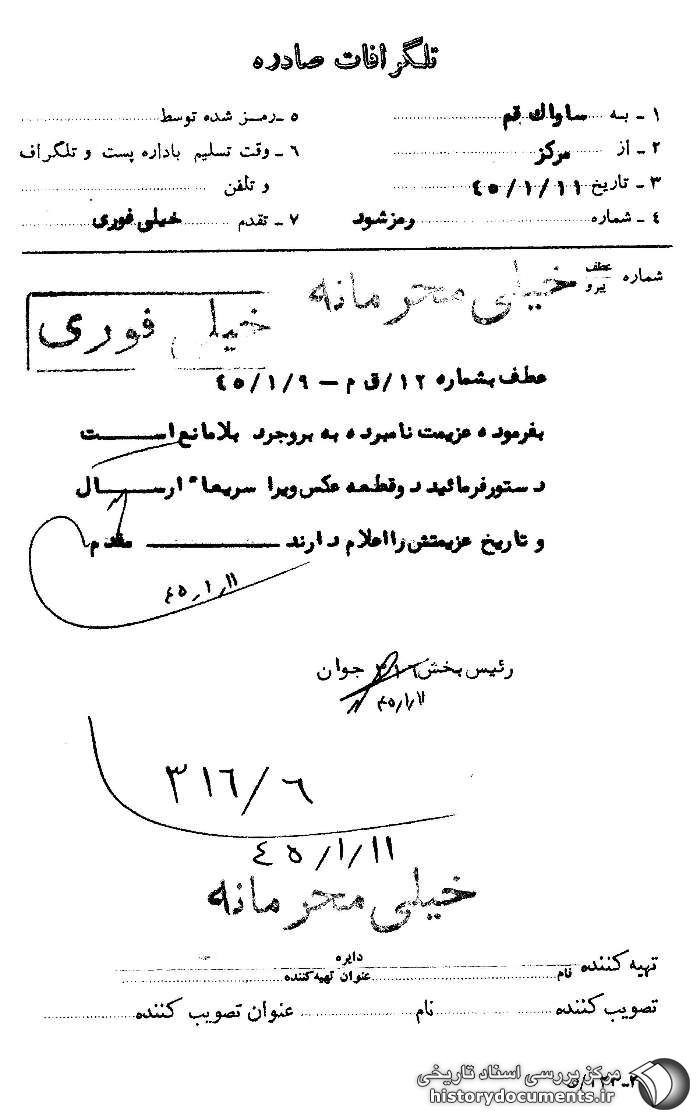 تلگرافات صادره
۱ - به ساواك قم
۲ - از مرکز
۳ - تاریخ ۴۵/۱/۱۱
۴ - شماره رمزشود
۵ - رمز شده توسط
۶ - وقت تسلیم باداره پست و تلگراف
و تلفن
۷ - تقدم خیلی فوری
شماره عطف پیرو خیلی محرمانه
خیلی فوری
عطف بشماره ۱۲/ق م - ۴۵/۱/۹
بفرموده عزیمت نامبرده به بروجرد بلامانع است
دستورفرمائید دوقطعه عکس ویرا سریعاً ارسال
و تاریخ عزیمتش رااعلام دارند مقدم
۴۵/۱/۱۱
رئیس بخش ۳۱۶ جوان
۴۵/۱/۱۱
۳۱۶/۶
۴۵/۱/۱۱
خیلی محرمانه
تهیه کننده نام دایره عنوان تهیه کننده
تصویب کننده نام عنوان تصویب کننده
مرکز بررسی اسناد تاریخی
historydocuments.ir